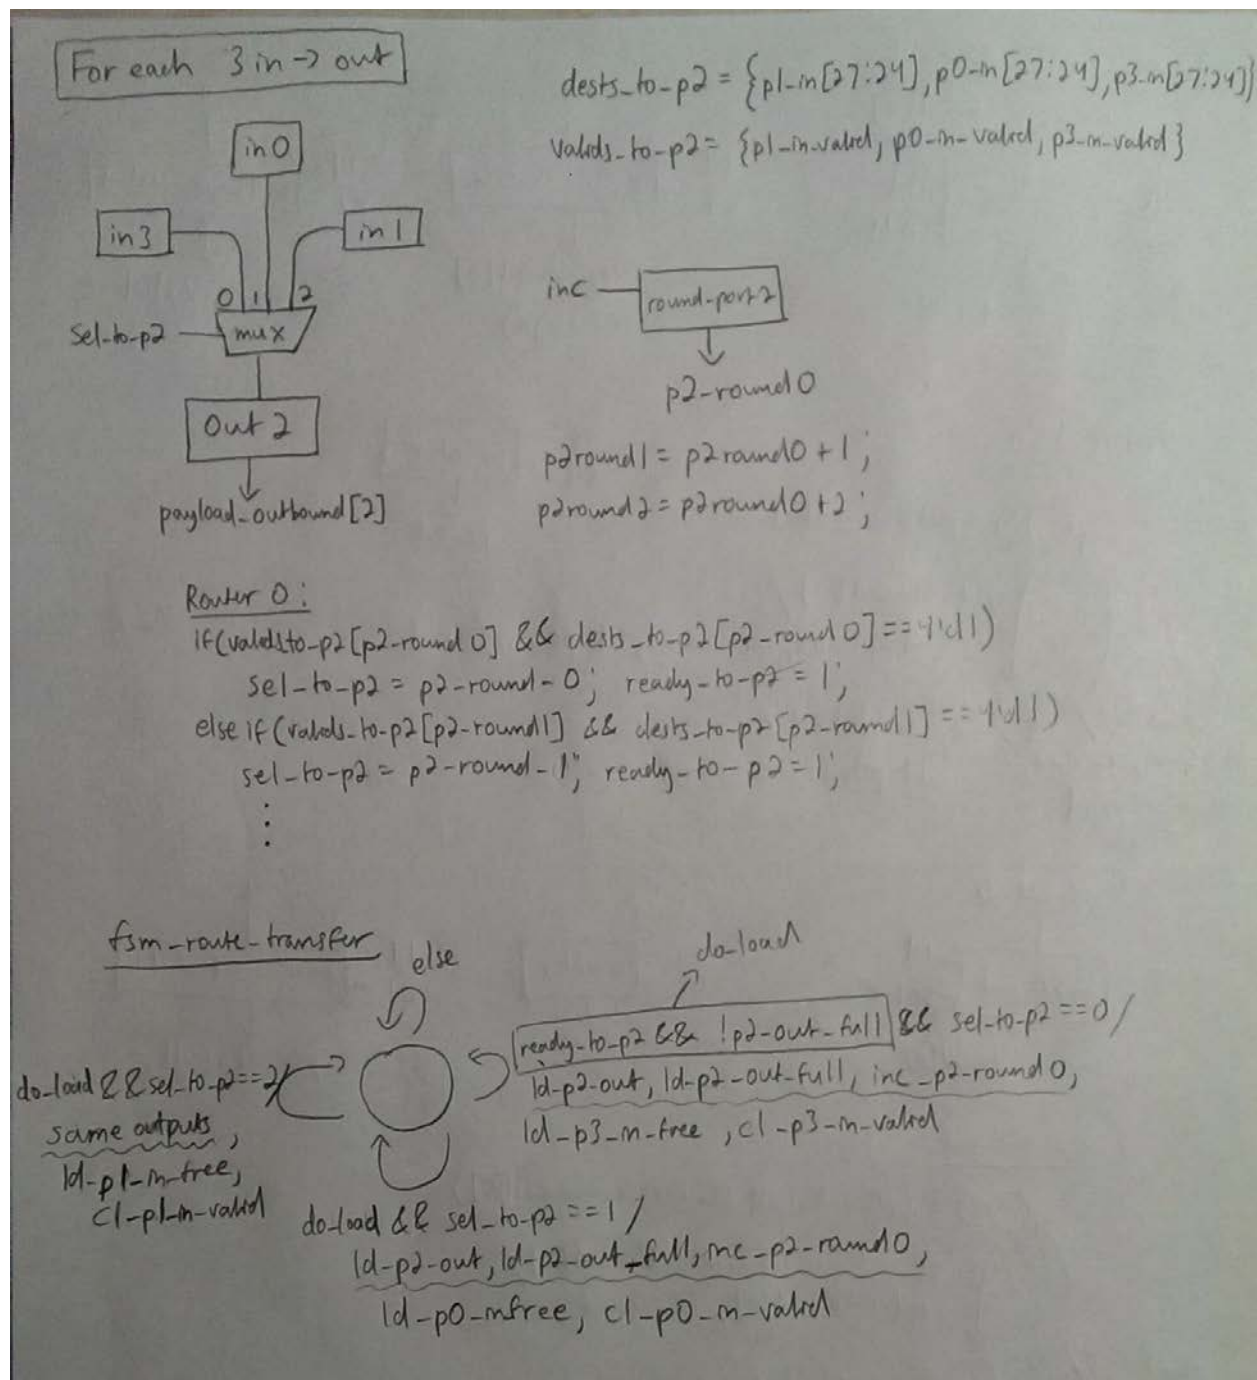 For each 3 in -> out
dests_to_p2 = {p1-in[27:24], p0-in[27:24], p3-in[27:24]}
valids_to_p2 = {p1-in-valid, p0-in-valid, p3-in-valid}
in 0
in 3
in 1
0 1 2
Sel-to-p2
mux
Out 2
payload_outbound[2]
inc
round-port2
p2-round0
p2round1 = p2round0 + 1;
p2round2 = p2round0 + 2;
Router 0:
if(validsto-p2[p2-round 0] && dests_to-p2[p2-round 0] == 4'd1)
sel-to-p2 = p2-round-0; ready-to-p2 = 1;
else if (valids-to-p2[p2-round1] && dests-to-p2[p2-round1] == 4'd1)
sel-to-p2 = p2-round-1; ready-to-p2 = 1;
fsm-route-transfer
else
do-load
ready-to-p2 && !p2-out_full && sel-to-p2 == 0 /
ld-p2-out, ld-p2-out-full, inc_p2-round0,
ld-p3-in-free, cl-p3-in-valid
do-load && sel-to-p2==2/
same outputs,
ld-p1-in-free,
cl-p1-in-valid
do-load && sel-to-p2 == 1 /
ld-p2-out, ld-p2-out_full, inc-p2-round0,
ld-p0-infree, cl-p0-in-valid